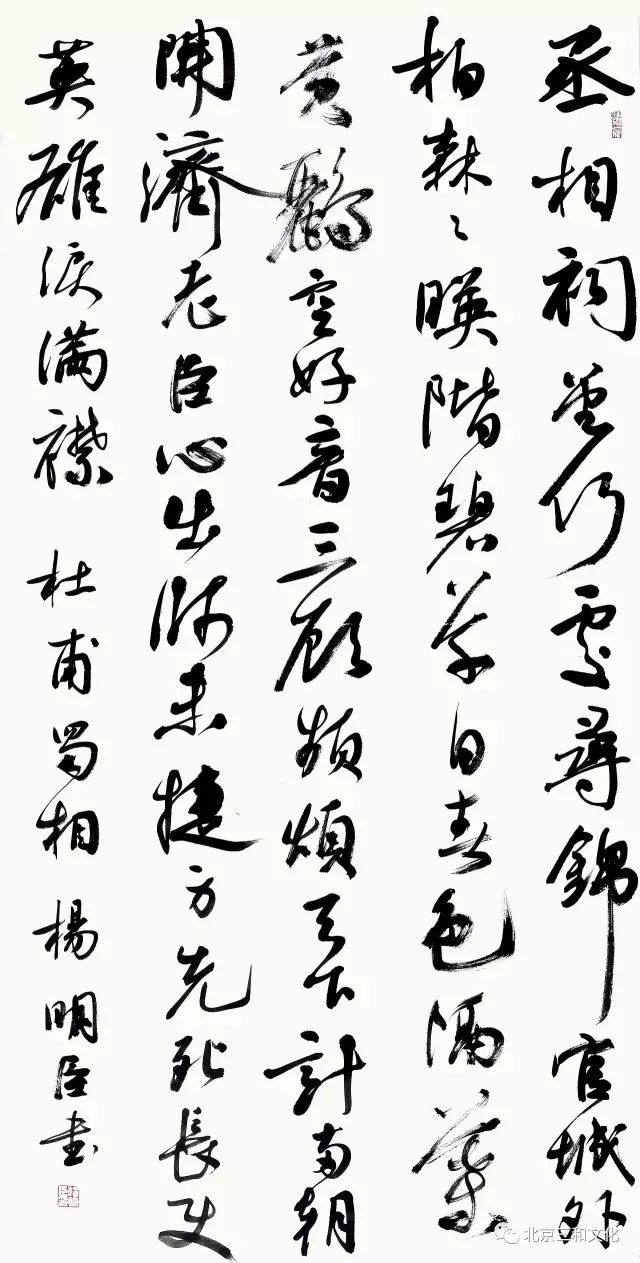 丞相祠堂何處尋錦官城外
柏森〻暎階碧草自春色隔葉
黄鸝空好音三顧頻煩天下計兩朝
開濟老臣心出師未捷身先死長使
英雄淚滿襟 杜甫蜀相 楊明臣書
北京三和文化